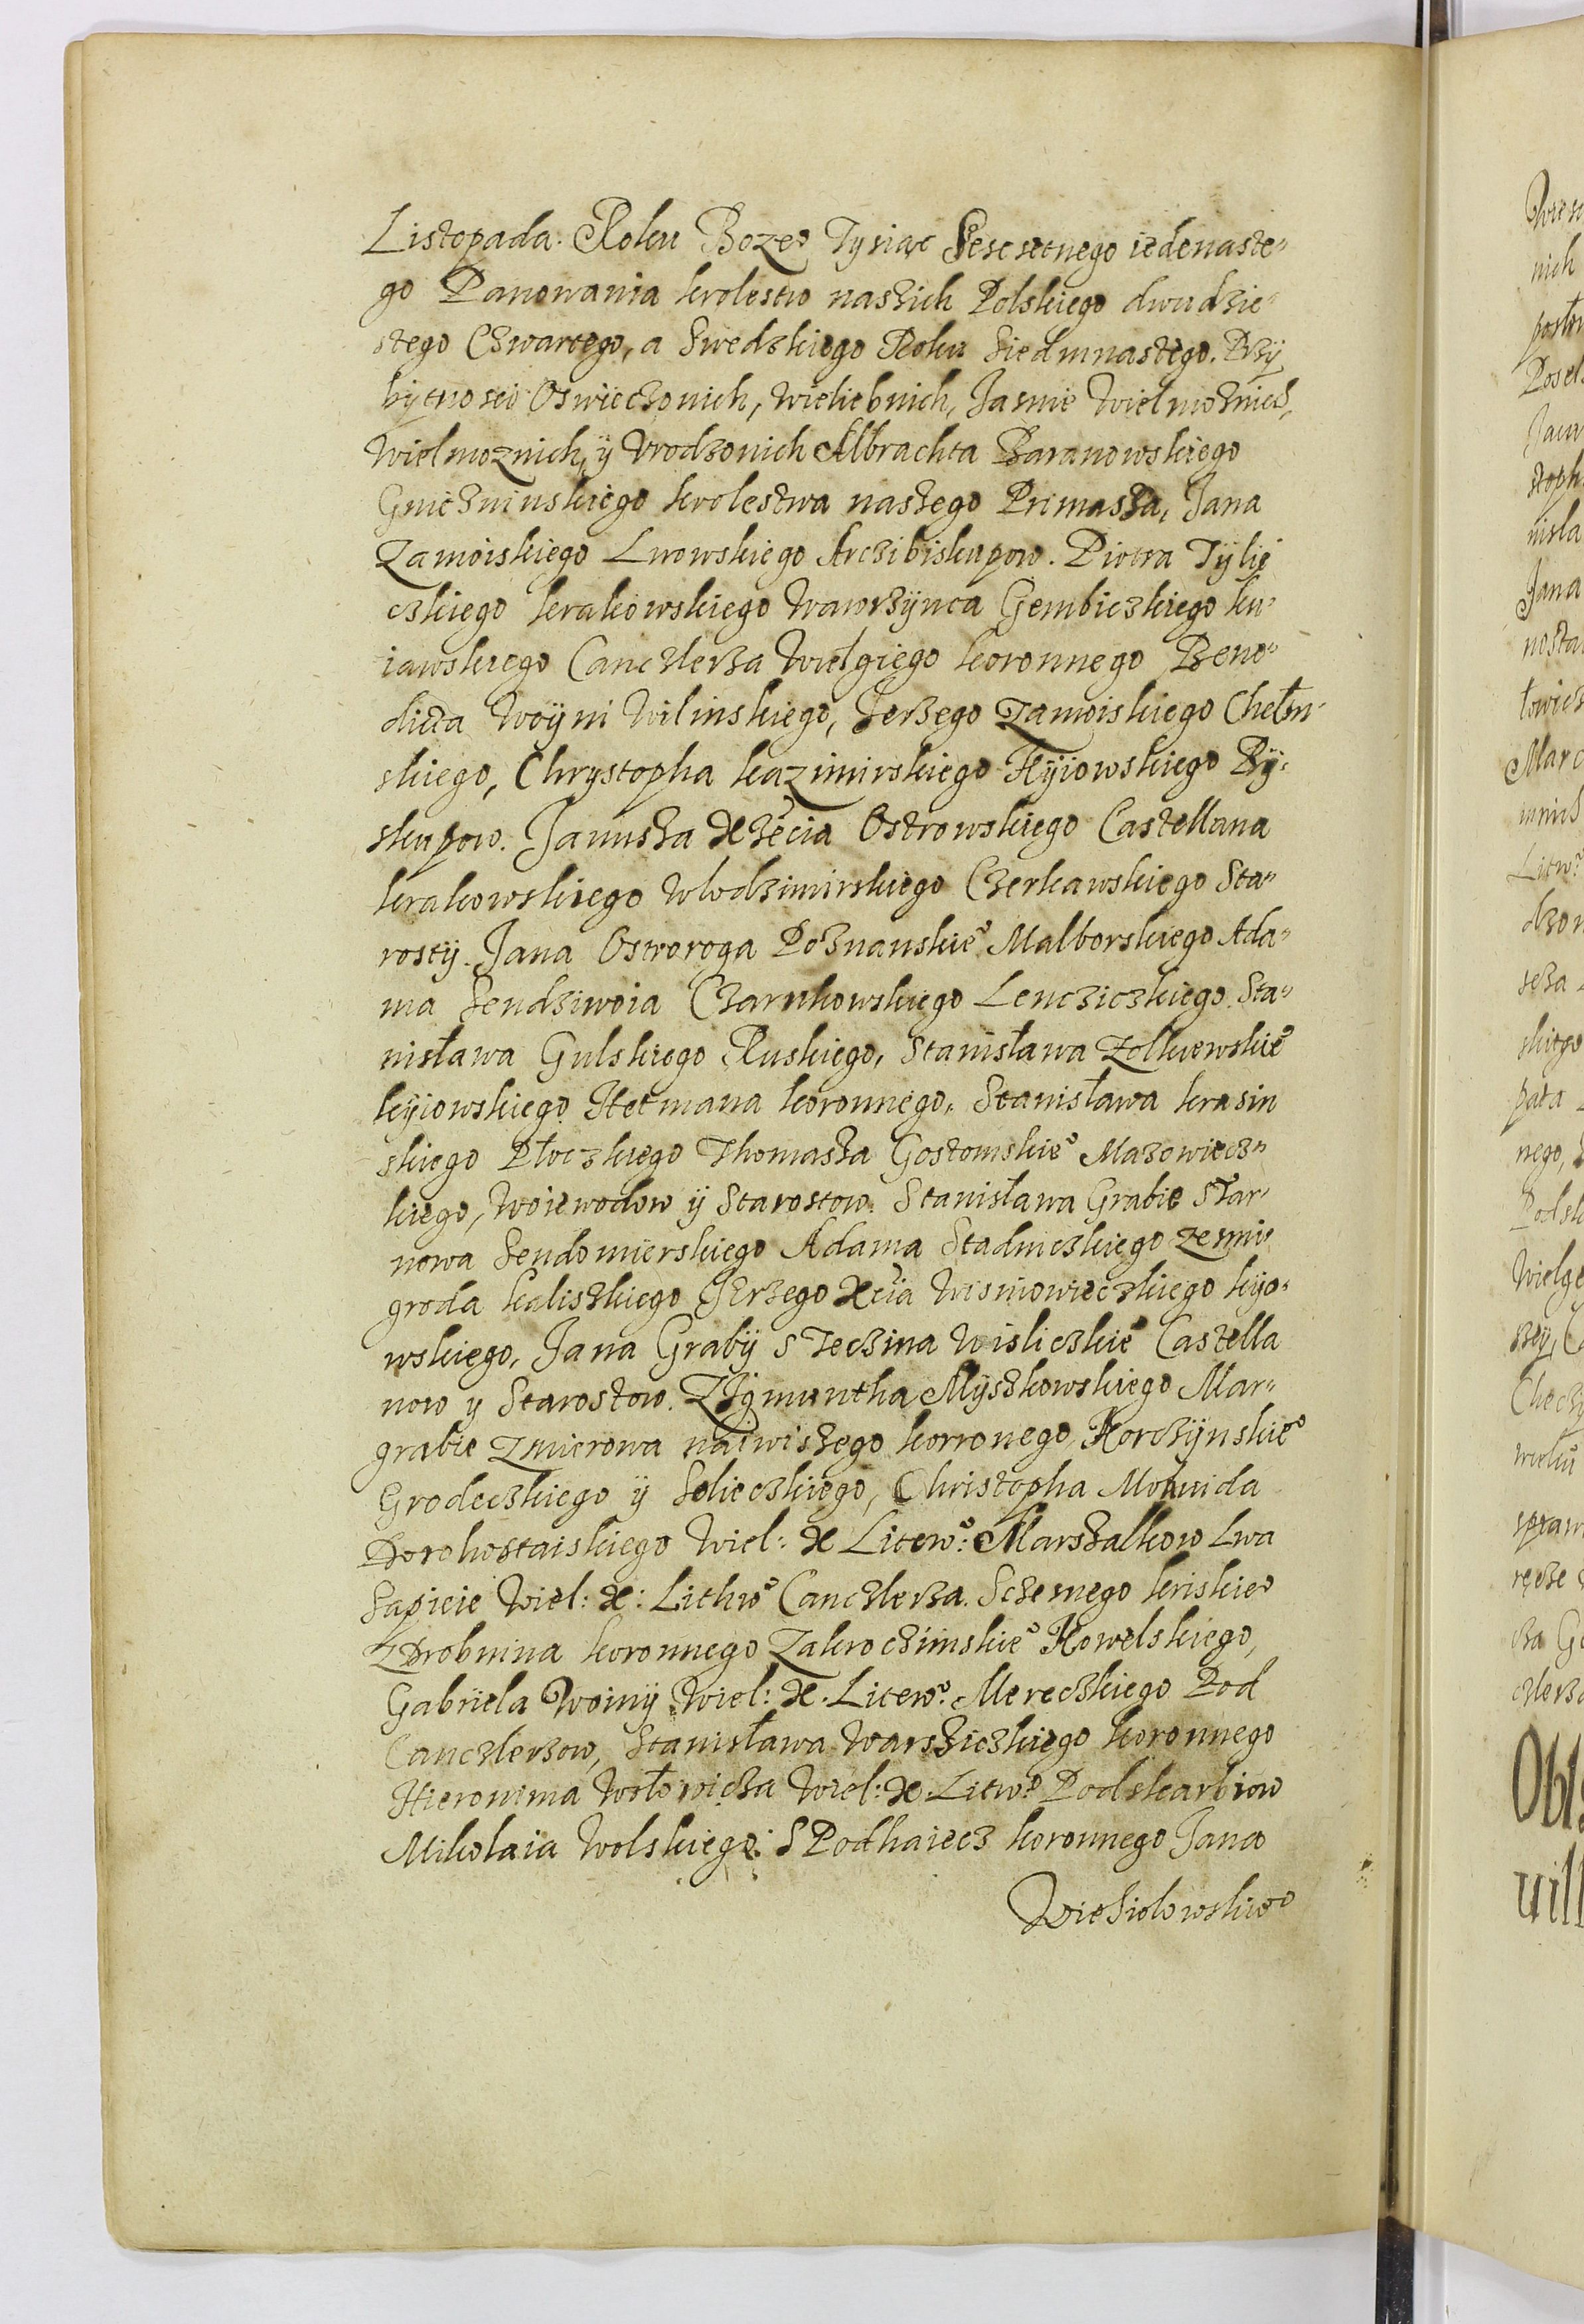 Listopada. Roku Bozeº Tysiąc Sesc setnego iedenaste„
go Panowania krolestw naszich Polskiego dwudzie„
stego Czwartego, a Swedzkiego Roku Siedmnastego. Przÿ
bÿtnosci Oswieczonich, Wieliebnich, Jasnie Wielmoznich,
Wielmoznich, ÿ Vrodzonich Albrachta Baranowskiego
Gnieznìnskiego krolestwa naszego Primassa, Jana
Zamoiskiego Lwowskiego Arczibiskupow. Piotra Tÿlię
czkiego krakowskiego Wawrzÿnca Gembiczkiego ku„
iawskiego Canczlerza Wielgiego koronnego Bene„
dicta Woÿni Wilinskiego, Jerzego Zamoiskiego Chełm„
skiego, Chrystopha kazimirskiego Kÿiowskiego Bÿ„
skupow. Janusza Xżęcia Ostrowskiego Castellana
krakowskiego Wlodzimirskiego Czerkawskiego Sta„
rostÿ. Jana Ostroroga Poznanskieº Malborskiego Ada„
ma Sendziwoia Czarnkowskiego Lencziczkiego. Sta„
nisława Gulskiego Ruskiego, Stanisława Zolkiewskieº
kÿiowskiego Hetmana koronnego, Stanisława krasin
skiego Płoczkiego Thomasza Gostomskieº Mazowiecz„
kiego, Woiewodow ÿ Starostow. Stanisława Grabie Star„
nowa Sendomierskiego Adama Stadniczkiego zesmi„
groda kaliszkiego JErzego Xcia Wisniowieczkiego kÿo„
wskiego, Jana Grabÿ S Teczina Wisliczkieº Castella
now y Starostow. ZIgmuntha Mÿszkowskiego Mar„
grabie Zmierowa naiwiszego korronego, Korczÿnskieº
Grodeczkiego ÿ Solieczkiego, Christopha Moniuida
Dorohostaiskiego Wiel: X Litewº: Marszalkow Lwa
Sapieie Wiel: X: Lithwº Canczlerza. Sczesnego kriskieº
ZDrobnina koronnego Zakrocżimskieº Kowelskiego,
Gabrÿela Woinÿ Wiel: X. Litewº. Mereczkiego Pod
Canczlerzow, Stanisława Warsziczkiego koronnego
Hieronima Wołowicza Wiel: X. Litwº Podskarbiow
Mikolaia Wolskiego: S Podhaiecz koronnego Jana
Wiesiolowskieº